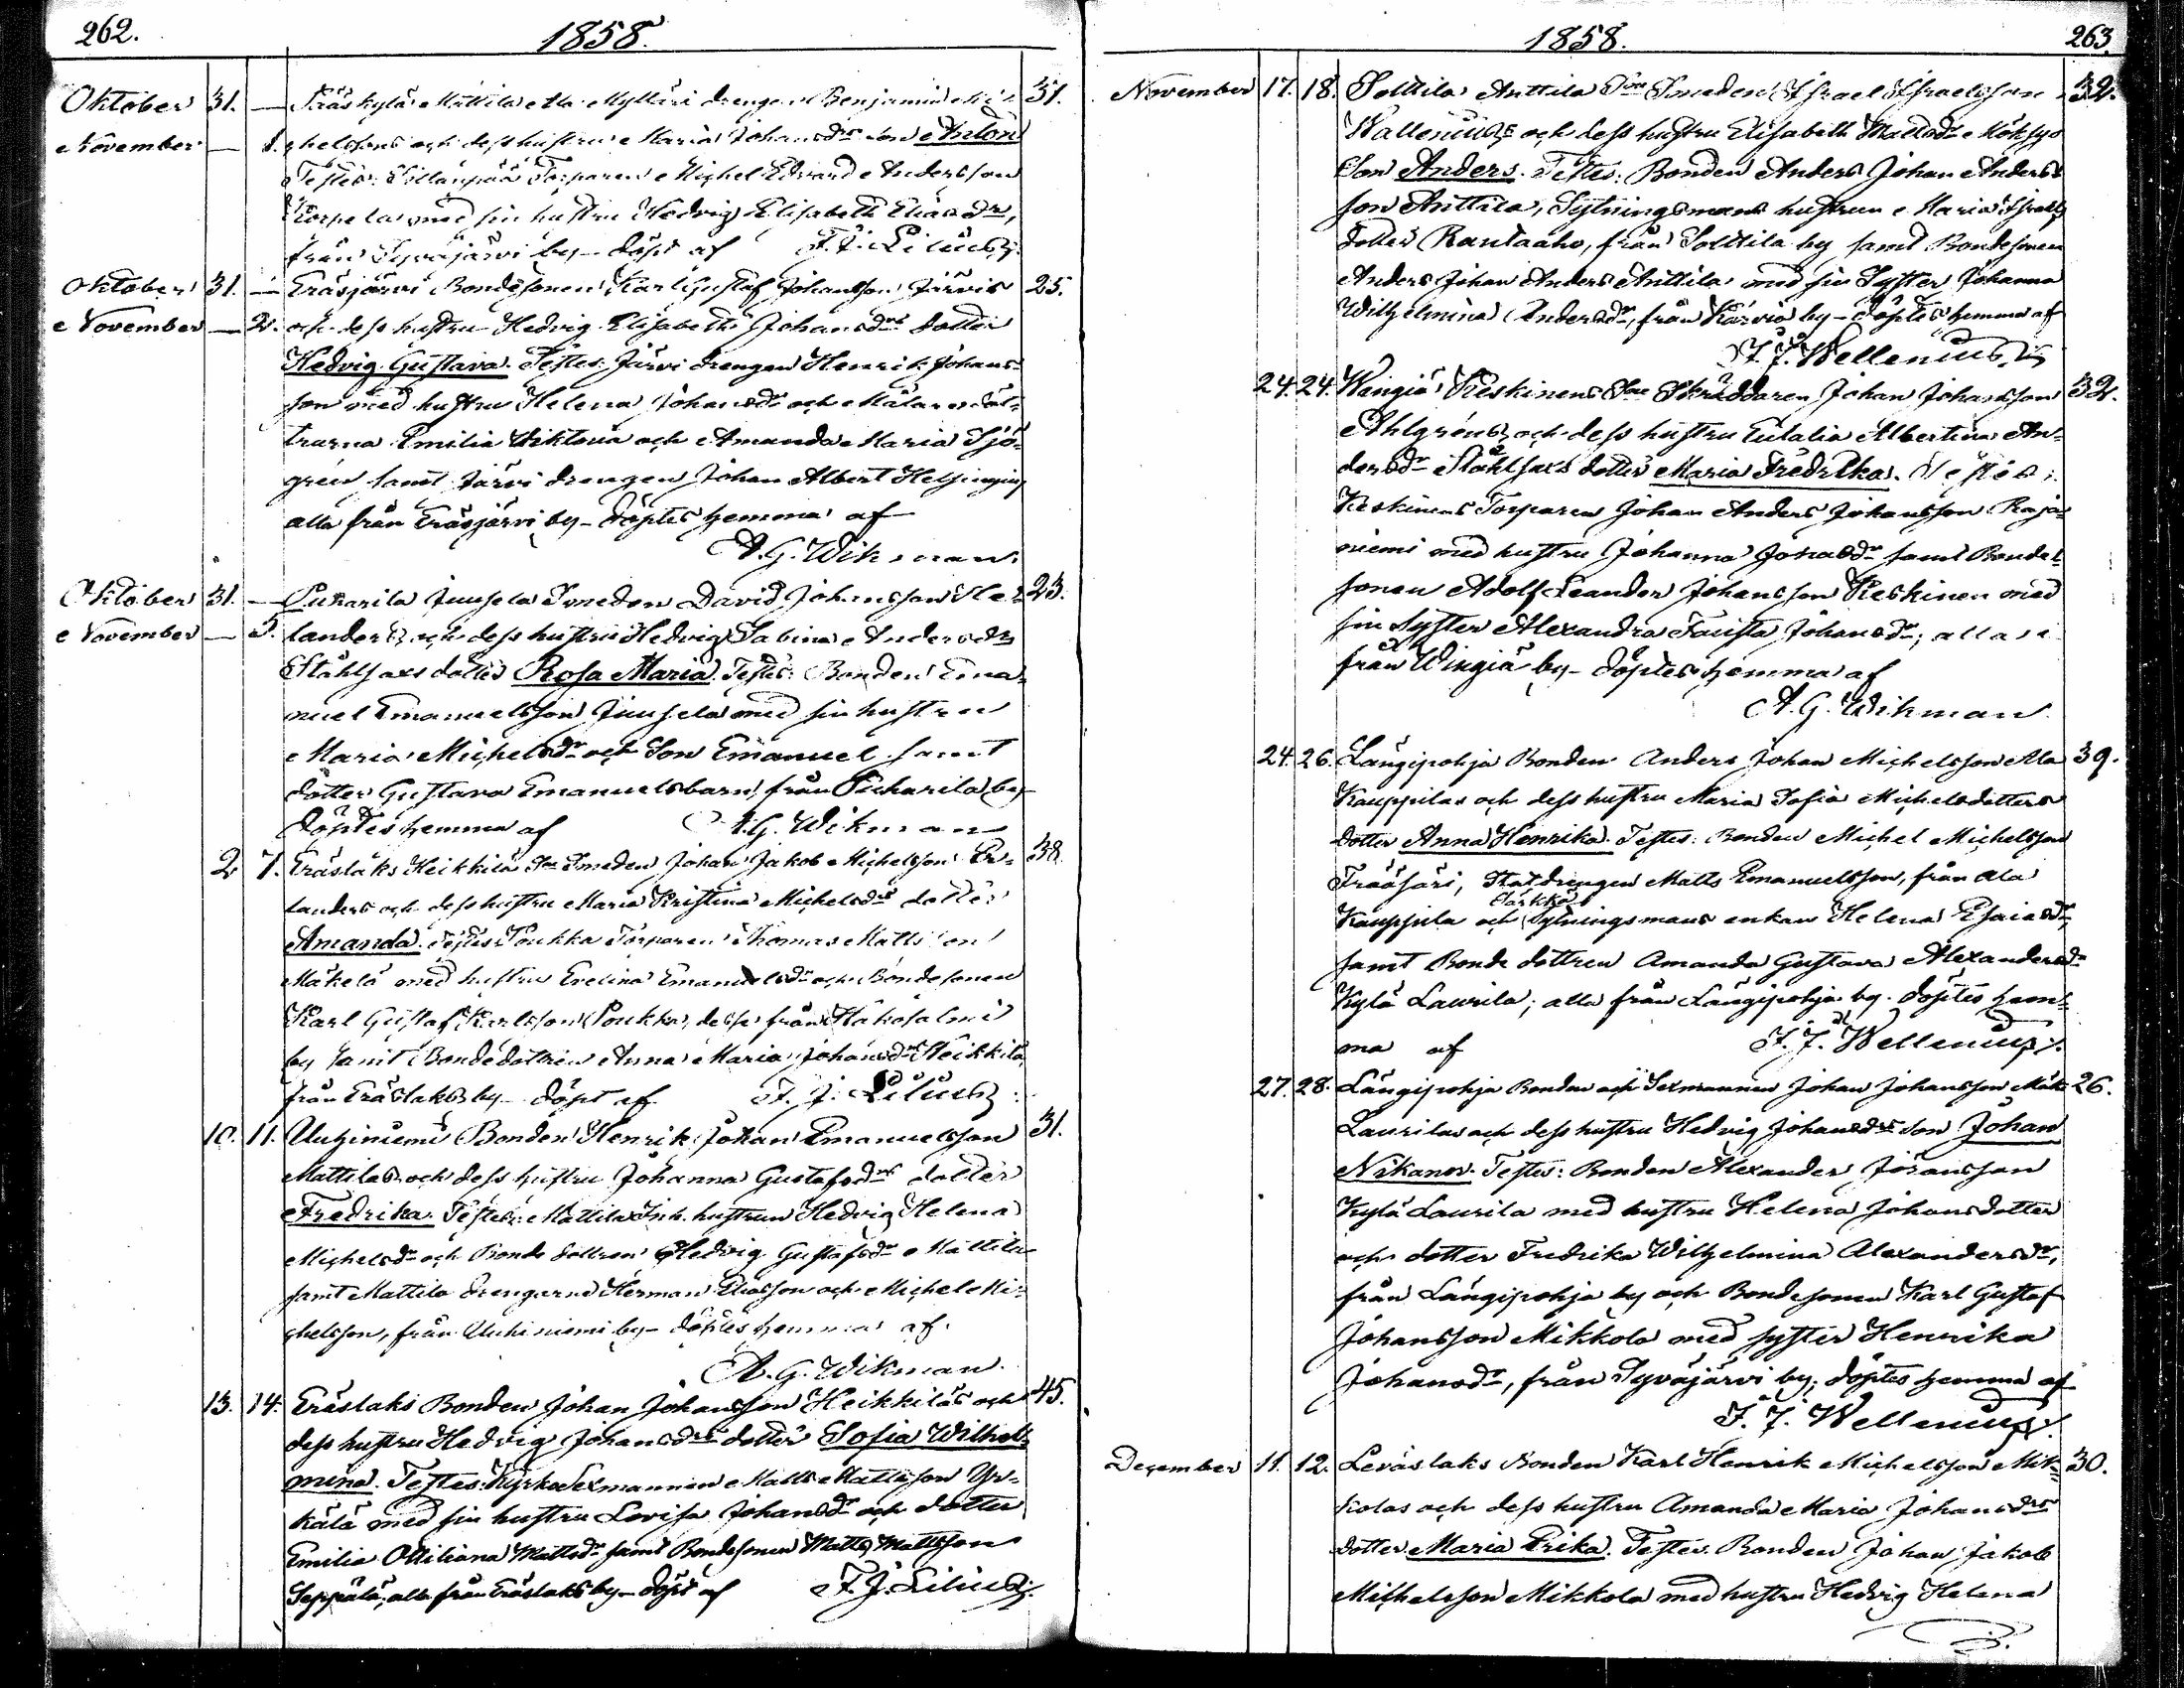 262.
1858.
Oktober 31. — Träskylä Mattila Ala Mylläri drengen Benjamin Mi= 31.
November — 1. chelssons och dess hustru Maria Johansdrs son Anton
Testes: Sillanpää Torparen Michel Edvard Andersson
Korpela med sin hustru Hedvig Elisabeth Eliasdr,
från Syväjärvi by – döpt af F. J. Lilius
Oktober 31. — Eräsjärvi Bondesonen Karl Gustaf Johansson Järvis 25.
November — 2. och dess hustru Hedvig Elisabeth Johansdrs dotter
Hedvig Gustava. Testes: Järvi drengen Henrik Johans=
son med hustru Helena Johansdr och Målare döt=
trarna Emilia Wiktoria och Amanda Maria Sjö=
gren samt Järvi drengen Johan Albert Helsingius
alla från Eräsjärvi by – döptes hemma af
A. G. Wikman.
Oktober 31. — Puharila Juusela Smeden David Johansson He= 23.
November — 5. landers och dess hustru Hedvig Sabina Andersdrs
Stählsaxs dotter Rosa Maria. Testes: Bonden Ema=
nuel Emanuelsson Juusela med sin hustru
Maria Michelsdr och Son Emanuel samt
dotter Gustava Emanuelsbarn, från Puharila by
döptes hemma af A. G. Wikman
2. 7. Eräslaks Heikkilä Soc Smeden Johan Jakob Michelsson Er= 38.
landers och dess hustru Maria Kristina Michelsdrs dotter
Amanda. Testes: Poukka Torparen Thomas Mattsson
Mäkelä med hustru Evelina Emanuelsdr och Bondesonen
Karl Gustaf Karlsson Poukka, desse från Hakosalmi
by samt Bondedottren Anna Maria Johansdr Heikkilä
från Eräslaks by – döpt af F. J. Lilius
10. 11. Uuhiniemi Bonden Henrik Johan Emanuelsson 31.
Mattilas och dess hustru Johanna Gustafsdrs dotter
Fredrika. Testes: Mattila Inh. hustrun Hedvig Helena
Michelsdr och Bonde dottren Hedvig Gustafsdr Mattila
samt Mattila drengarne Herman Eliasson och Michel Mi=
chelsson, från Uuhiniemi by – döptes hemma af
A. G. Wikman.
13. 14. Eräslaks Bonden Johan Johansson Heikkiläs och 45.
dess hustru Hedvig Johansdrs dotter Sofia Wilhel=
mina. Testes: Kyrko Sexmannen Matts Mattsson Yr=
kälä med sin hustru Lovisa Johansdr och dotter
Emilia Ottiliana Mattsdr samt Bondesonen Matts Mattsson
Seppälä, alla från Eräslaks by – döpt af F. J. Lilius
1858.
263.
November 17. 18. Solttila Anttila Soc Smeden Israel Israelsson 32.
Wallenius och dess hustru Elisabeth Mattsdr
Son Anders. Testes: Bonden Anders Johan Anders=
son Anttila, Sytningsmans hustrun Maria Israels
dotter Rantaaho, från Solttila by samt Bondesonen
Anders Johan Anders Anttila med sin Syster Johanna
Wilhelmina Andersdr, från Kärviä by – döptes hemma af
F. J. Wellenius
24. 24. Wingiä Keskinens Soc Skräddaren Johan Johansson 32.
Ahlgréns och dess hustru Eulalia Albertina An=
dersdr Ståhlsaxs dotter Maria Fredrika. Testes:
Keskinens Torparen Johan Anders Johansson Raja=
niemi med hustru Johanna Jonasdr samt Bonde=
sonen Adolf Leander Johansson Keskinen med
sin Syster Alexandra Fausta Johansdr; alla
från Wingiä by – döptes hemma af
A. G. Wikman
24. 26. Längipohja Bonden Anders Johan Michelsson Ala 39.
Kauppilas och dess hustru Maria Sofia Michelsdotters
dotter Anna Henrika. Testes: Bonden Michel Michelsson
Trääsäri, Statdrengen Matts Emanuelsson, från Ala
Särkkä
Kauppila och Sytningsmans enkan Helena Esaiasdr,
samt Bonde dottren Amanda Gustava Alexandersdr
Kylä Laurila; alla från Längipohja by. döptes hem=
ma af F. J. Wellenius.
27. 28. Längipohja Bonden och Sexmannen Johan Johansson Mäki 26.
Laurilas och dess hustru Hedvig Johansdrs son Johan
Nikanor. Testes: Bonden Alexander Göransson
Kylä Laurila med hustru Helena Johansdotter
och dotter Fredrika Wilhelmina Alexandersdr,
från Längipohja by och Bondesonen Karl Gustaf
Johansson Mikkola med syster Henrika
Johansdr, från Syväjärvi by, döptes hemma af
F. J. Wellenius.
December 11. 12. Leväslaks Bonden Karl Henrik Michelsson Mik= 30.
kolas och dess hustru Amanda Maria Johansdrs
dotter Maria Erika. Testes: Bonden Johan Jakob
Michelsson Mikkola med hustru Hedvig Helena